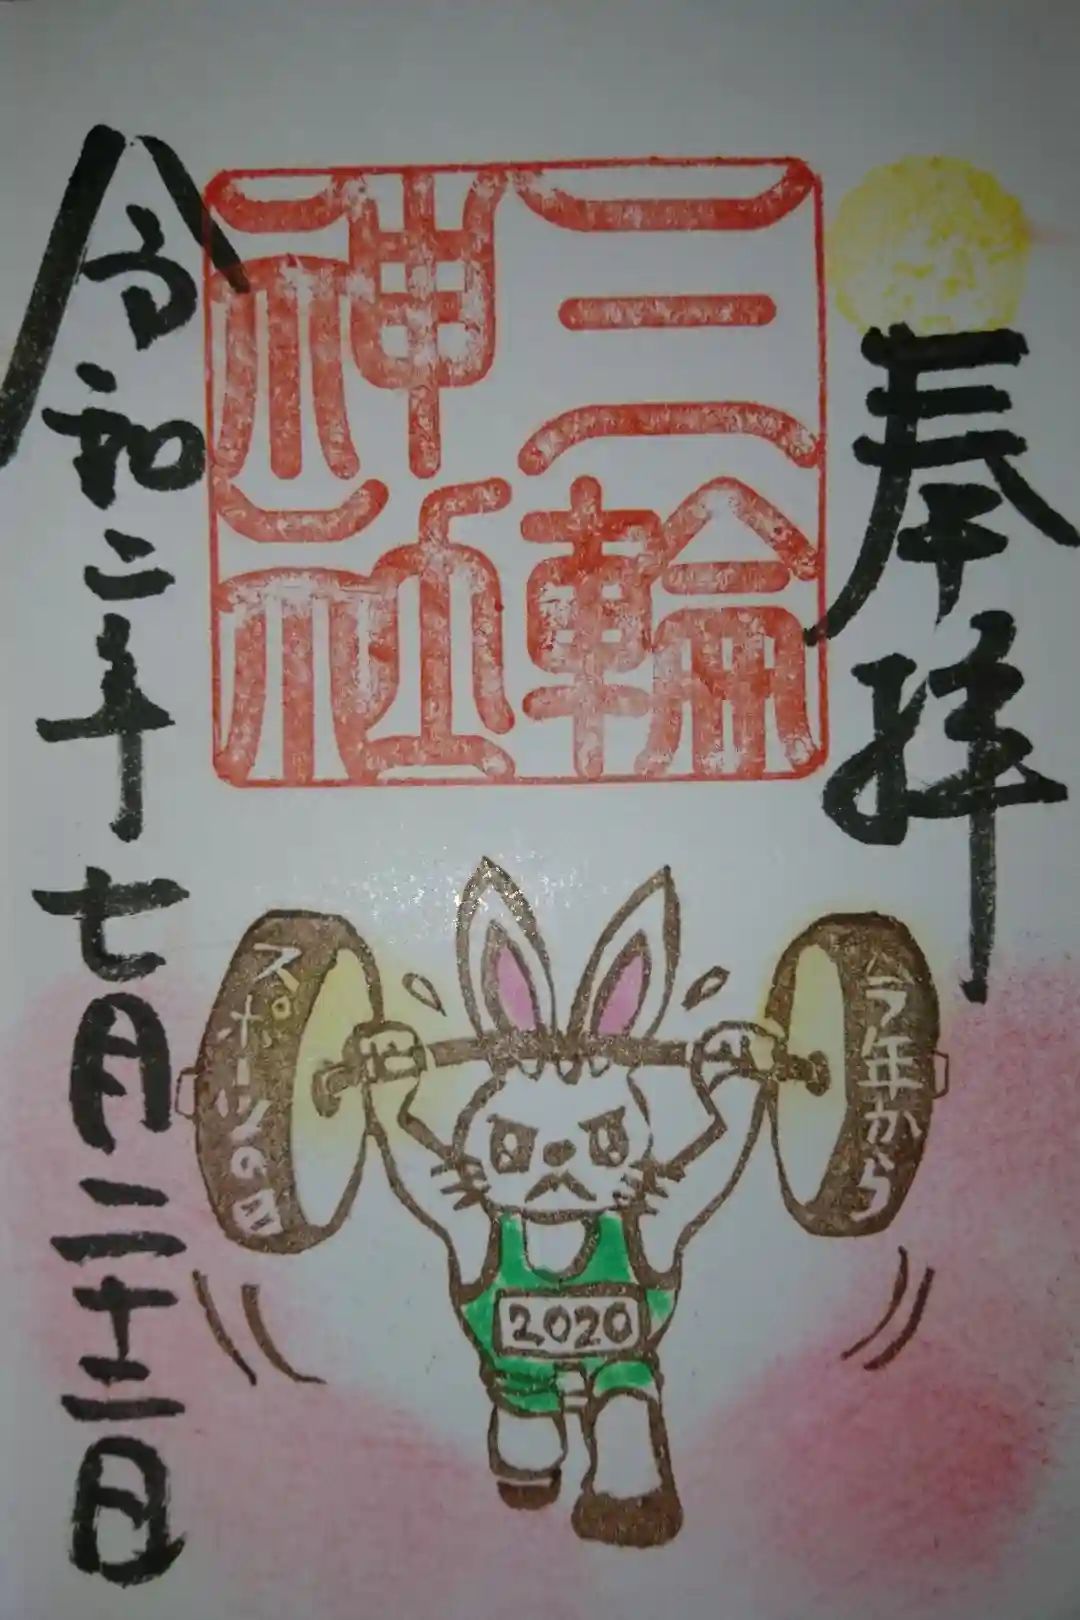 奉拝
三輪
神社
令和二年七月二十三日
今年から
スポーツの日
2020